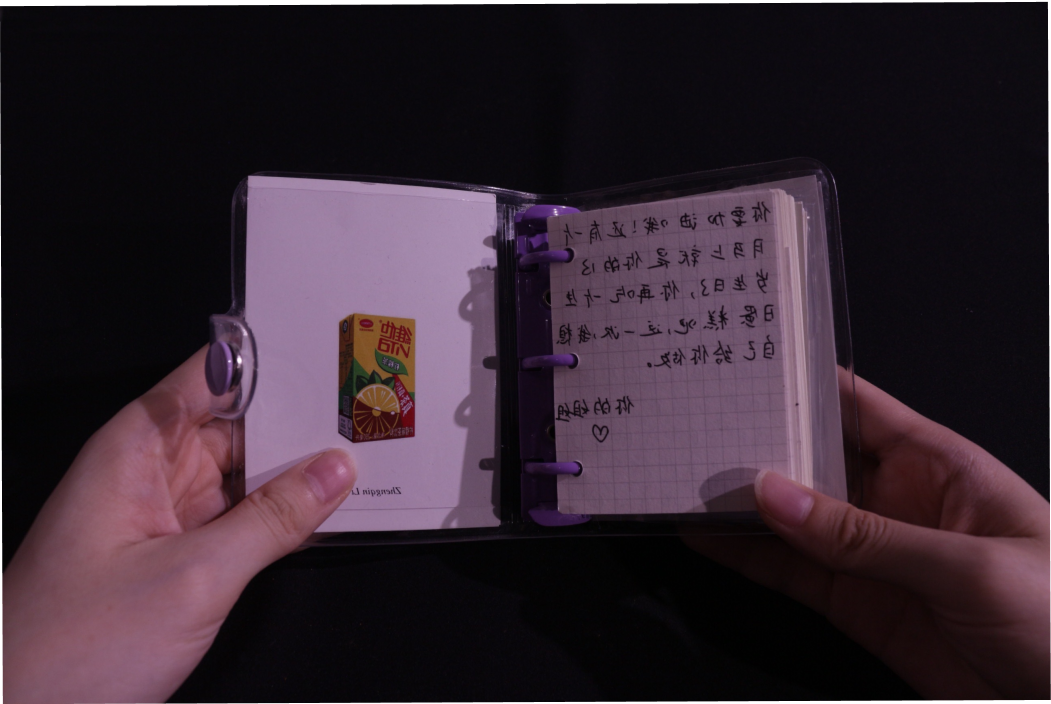 維他
VITA
Zhengqin
你要加油哦！还有一个
月马上就是你的13
岁生日了，你再吃一个生
日蛋糕吧，这一次，想
自己给你做。
你的姐姐
♡